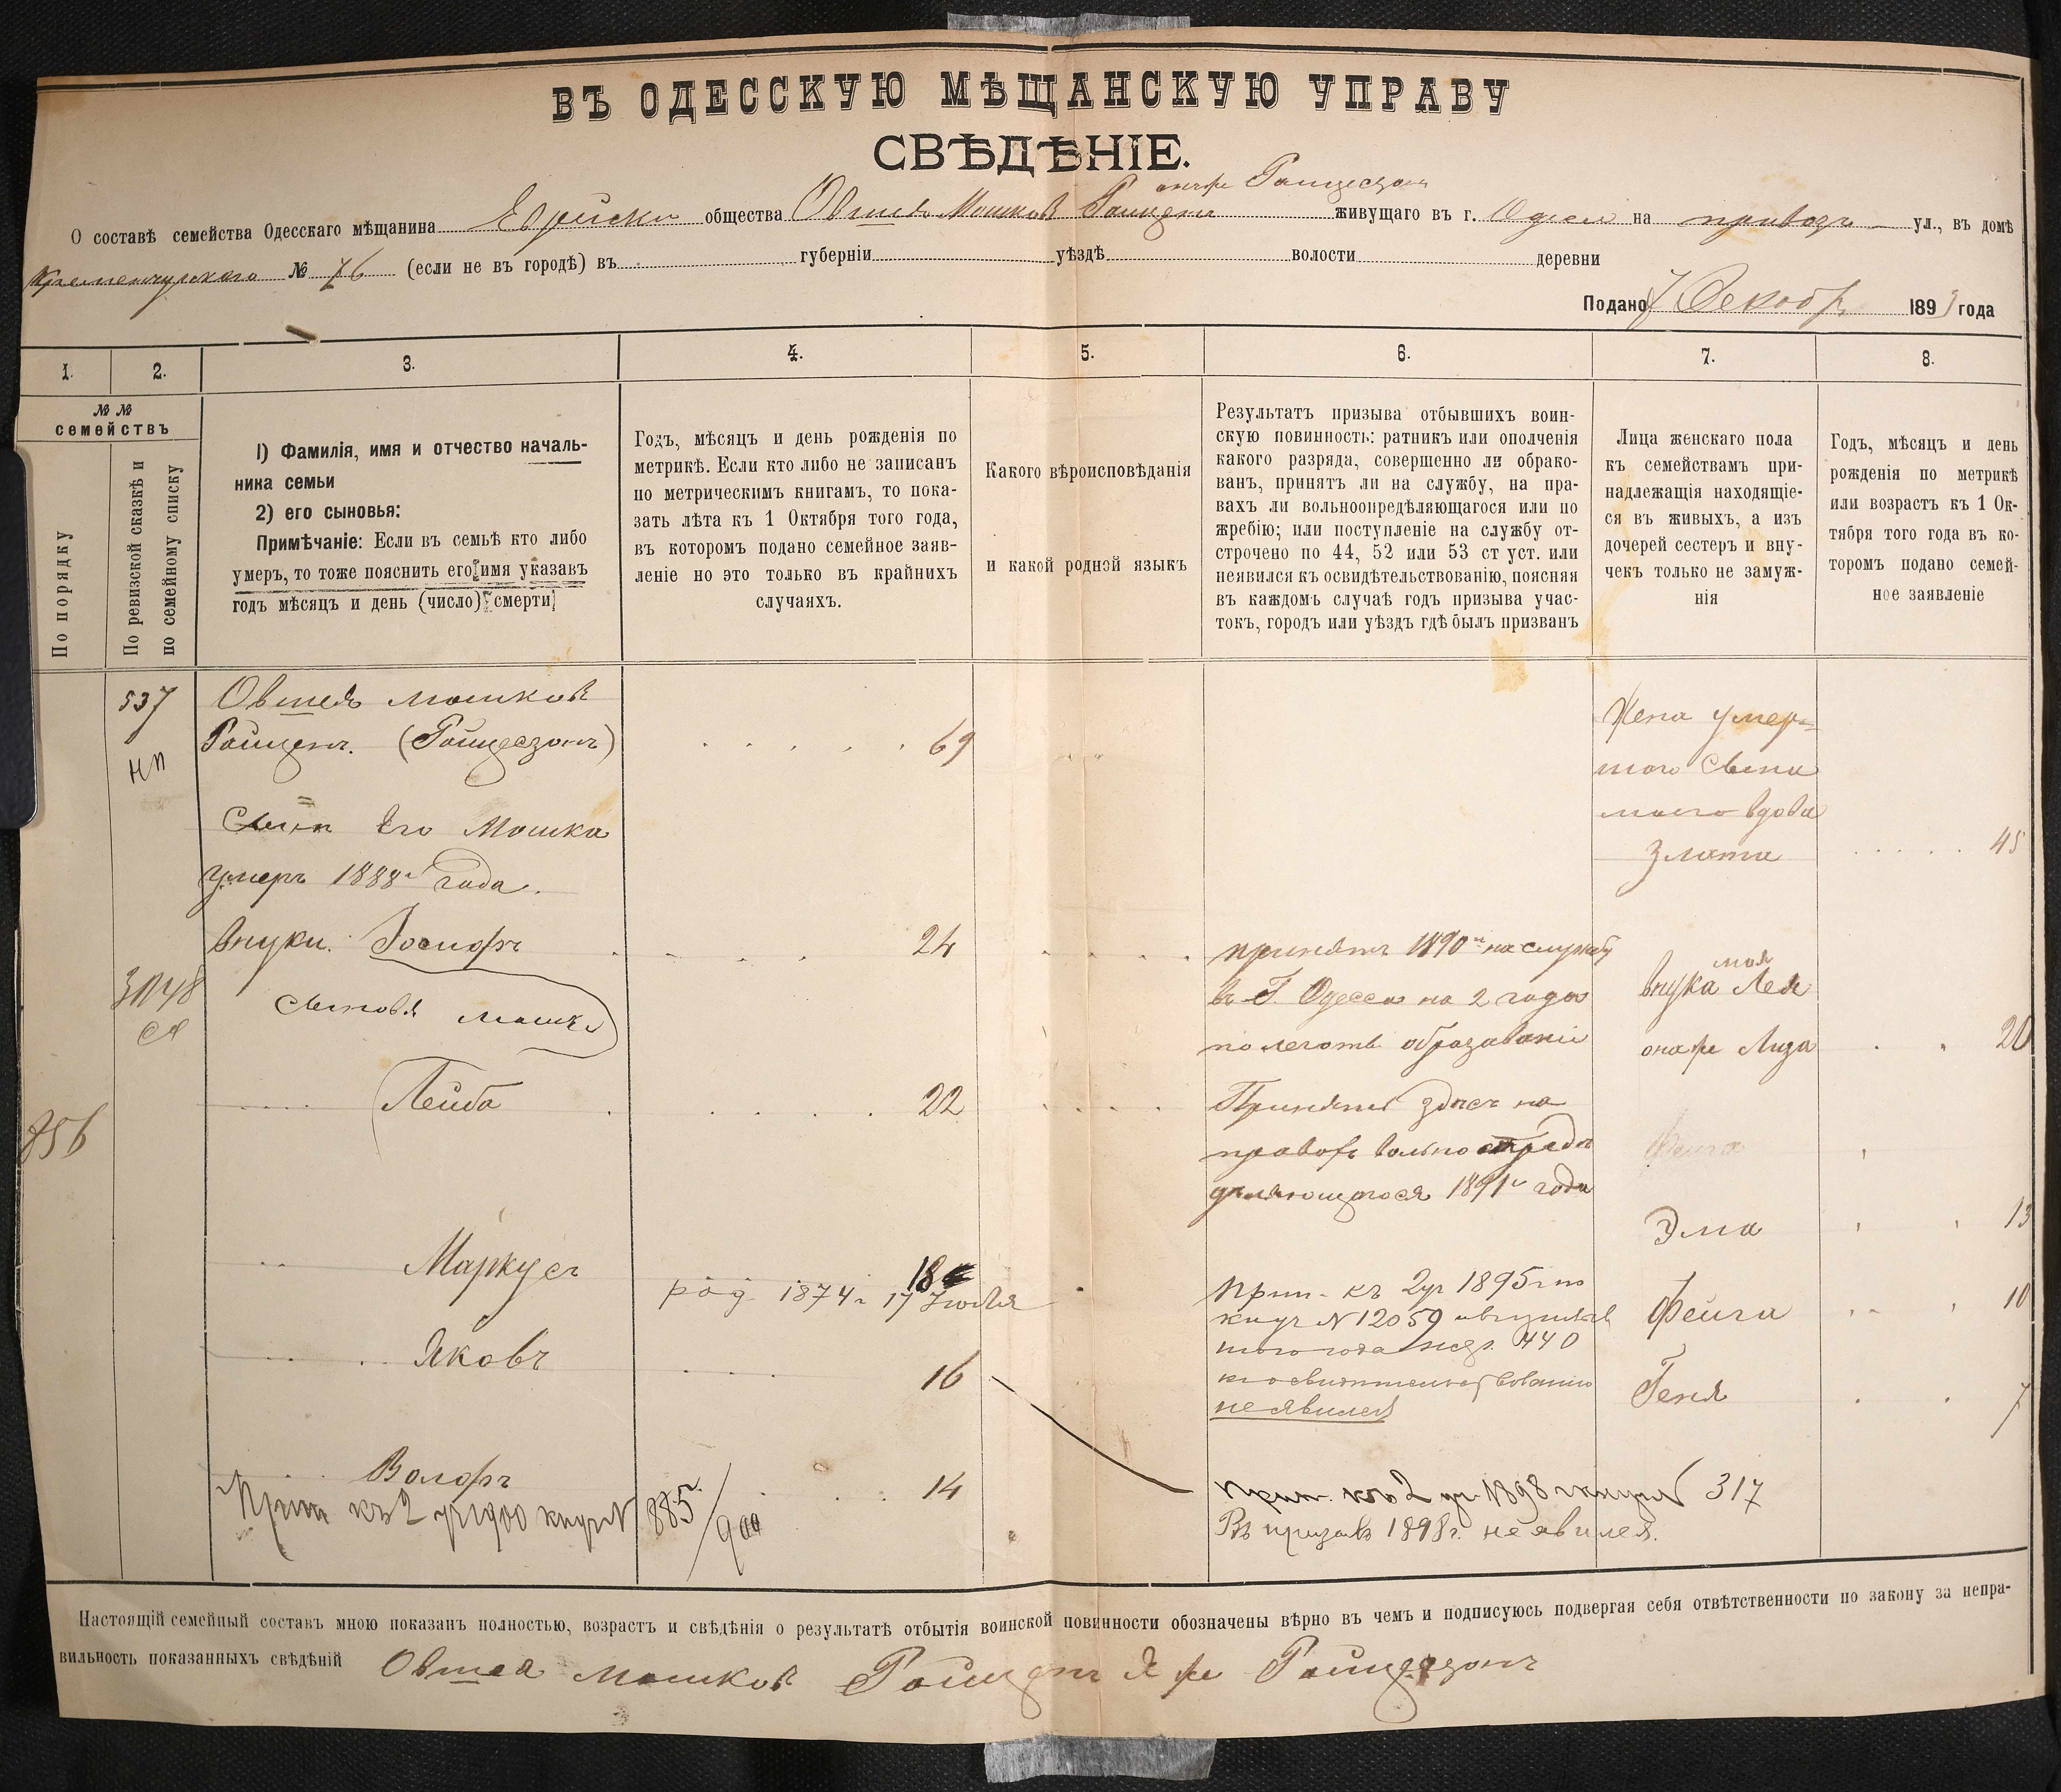 ВЪ ОДЕССКУЮ МѢЩАНСКУЮ УПРАВУ
СВѢДѢНІЕ.
О составѣ семейства Одесскаго мѣщанина Еврейска общества Овшея Мошков живущаго въ г. Одессе на привозъ ул., въ домѣ
Кременчугского № 76 (если не въ городѣ) въ губерніи уѣздѣ волости деревни
Подано 7 Декабр 1893 года
1. 2. 3. 4. 5. 6. 7. 8.
№ №
семействъ
По порядку
По ревизской сказкѣ и
по семейному списку
1) Фамилія, имя и отчество началь-
ника семьи
2) его сыновья:
Примѣчаніе: Если въ семьѣ кто либо
умеръ, то тоже пояснить его имя указавъ
годъ мѣсяцъ и день (число) смерти
Годъ, мѣсяцъ и день рожденія по
метрикѣ. Если кто либо не записанъ
по метрическимъ книгамъ, то пока-
зать лѣта къ 1 Октября того года,
въ которомъ подано семейное заяв-
леніе но это только въ крайнихъ
случаяхъ.
Какого вѣроисповѣданія
и какой родной языкъ
Результатъ призыва отбывшихъ воин-
скую повинность: ратникъ или ополченія
какого разряда, совершенно ли обрако-
ванъ, принятъ ли на службу, на пра-
вахъ ли вольноопредѣляющагося или по
жребію; или поступленіе на службу от-
строчено по 44, 52 или 53 ст уст. или
неявился къ освидѣтельствованію, поясняя
въ каждомъ случаѣ годъ призыва учас-
токъ, городъ или уѣздъ гдѣ былъ призванъ
Лица женскаго пола
къ семействамъ при-
надлежащія находящіе-
ся въ живыхъ, а изъ
дочерей сестеръ и вну-
чекъ только не замуж-
нія
Годъ, мѣсяцъ и день
рожденія по метрикѣ
или возрастъ къ 1 Ок-
тября того года въ ко-
торомъ подано семей-
ное заявленіе
537 Овшей Мошков
нп Ройценъ. (Ройцесзонъ) 69
Жена умер-
шого Сына
моего вдова
Злата 45
Сын Его Мошка
умеръ 1888г года.
внуки. Иосифъ 24
принятъ 1890г на службу
в Г. Одесса на 2 года
по леготе образованіи
внука моя Лея
она же Лиза 20
Сыновя Мошки
Лейба 22
Принятъ здесъ на
правахъ вольноопреде
деляющагося 1891г года
Фейга
Эма 13
856
Маркусъ 18
род 1874г 17 Июля
Прип. къ 2 уч 1895г по
кн уч N 12059
того года жер. 440
неявился
Фейга 10
Яковъ 16
Геня 7
Волофъ 14
Прип къ 2 уч 1900 кн уч N 885/900
Прип. ко 2 уч. 1898г кн уч N 317
Въ призывъ 1898г. неявился.
Настоящій семейный составъ мною показанъ полностью, возрастъ и свѣдѣнія о результатѣ отбытія воинской повинности обозначены вѣрно въ чемъ и подписуюсь подвергая себя отвѣтственности по закону за непра-
вильность показанныхъ свѣдѣній Овшея Мошков Ройценъ я же Ройцесзонъ